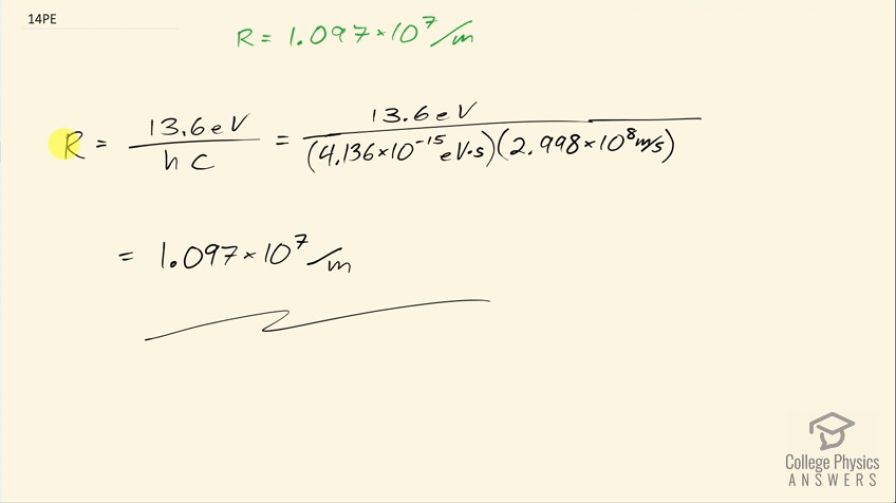 14PE
R = 1.097×10⁷/m
R = 13.6eV / hc = 13.6eV / (4.136×10⁻¹⁵ eV·s)(2.998×10⁸ m/s)
= 1.097×10⁷/m
College Physics
ANSWERS